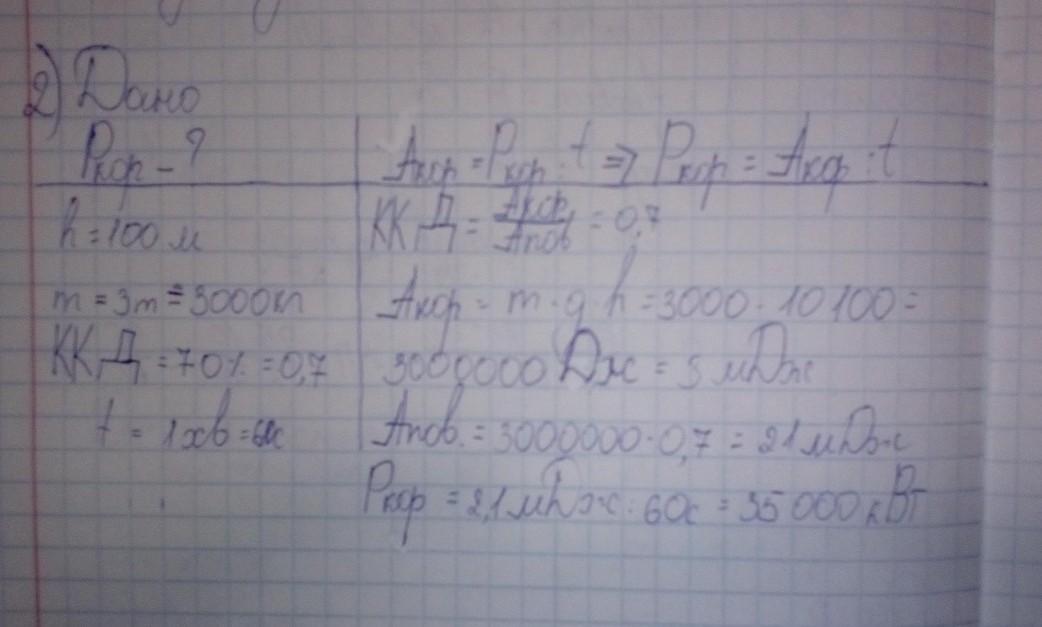 2) Дано
Pкор - ?
h = 100 м
m = 3т = 3000кг
ККД = 70% = 0,7
t = 1хв = 60с
Aкор = Pкор · t => Pкор = Aкор : t
ККД = Aкор / Aпов = 0,7
Aкор = m · g · h = 3000 · 10 100 =
3000000 Дж = 3 мДж
Aпов. = 3000000 · 0,7 = 21 мДж
Pкор = 2,1 мДж : 60с = 35 000 кВт